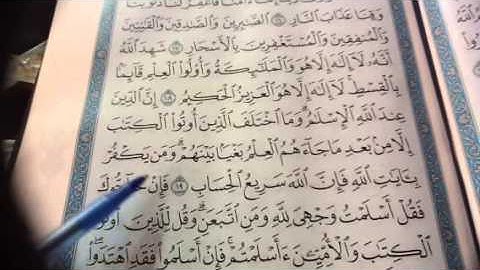 وَقِنَا عَذَابَ ٱلنَّارِ ١٦ ٱلصَّٰبِرِينَ وَٱلصَّٰدِقِينَ وَٱلْقَٰنِتِينَ
وَٱلْمُنفِقِينَ وَٱلْمُسْتَغْفِرِينَ بِٱلْأَسْحَارِ ١٧ شَهِدَ ٱللَّهُ
أَنَّهُۥ لَآ إِلَٰهَ إِلَّا هُوَ وَٱلْمَلَٰٓئِكَةُ وَأُو۟لُوا۟ ٱلْعِلْمِ قَآئِمًۢا
بِٱلْقِسْطِ لَآ إِلَٰهَ إِلَّا هُوَ ٱلْعَزِيزُ ٱلْحَكِيمُ ١٨ إِنَّ ٱلدِّينَ
عِندَ ٱللَّهِ ٱلْإِسْلَٰمُ وَمَا ٱخْتَلَفَ ٱلَّذِينَ أُوتُوا۟ ٱلْكِتَٰبَ
إِلَّا مِنۢ بَعْدِ مَا جَآءَهُمُ ٱلْعِلْمُ بَغْيًۢا بَيْنَهُمْ وَمَن يَكْفُرْ
بِـَٔايَٰتِ ٱللَّهِ فَإِنَّ ٱللَّهَ سَرِيعُ ٱلْحِسَابِ ١٩ فَإِنْ
فَقُلْ أَسْلَمْتُ وَجْهِىَ لِلَّهِ وَمَنِ ٱتَّبَعَنِ وَقُل لِّلَّذِينَ
ٱلْكِتَٰبَ وَٱلْأُمِّيِّـۧنَ ءَأَسْلَمْتُمْ فَإِنْ أَسْلَمُوا۟ فَقَدِ ٱهْتَدَوا۟